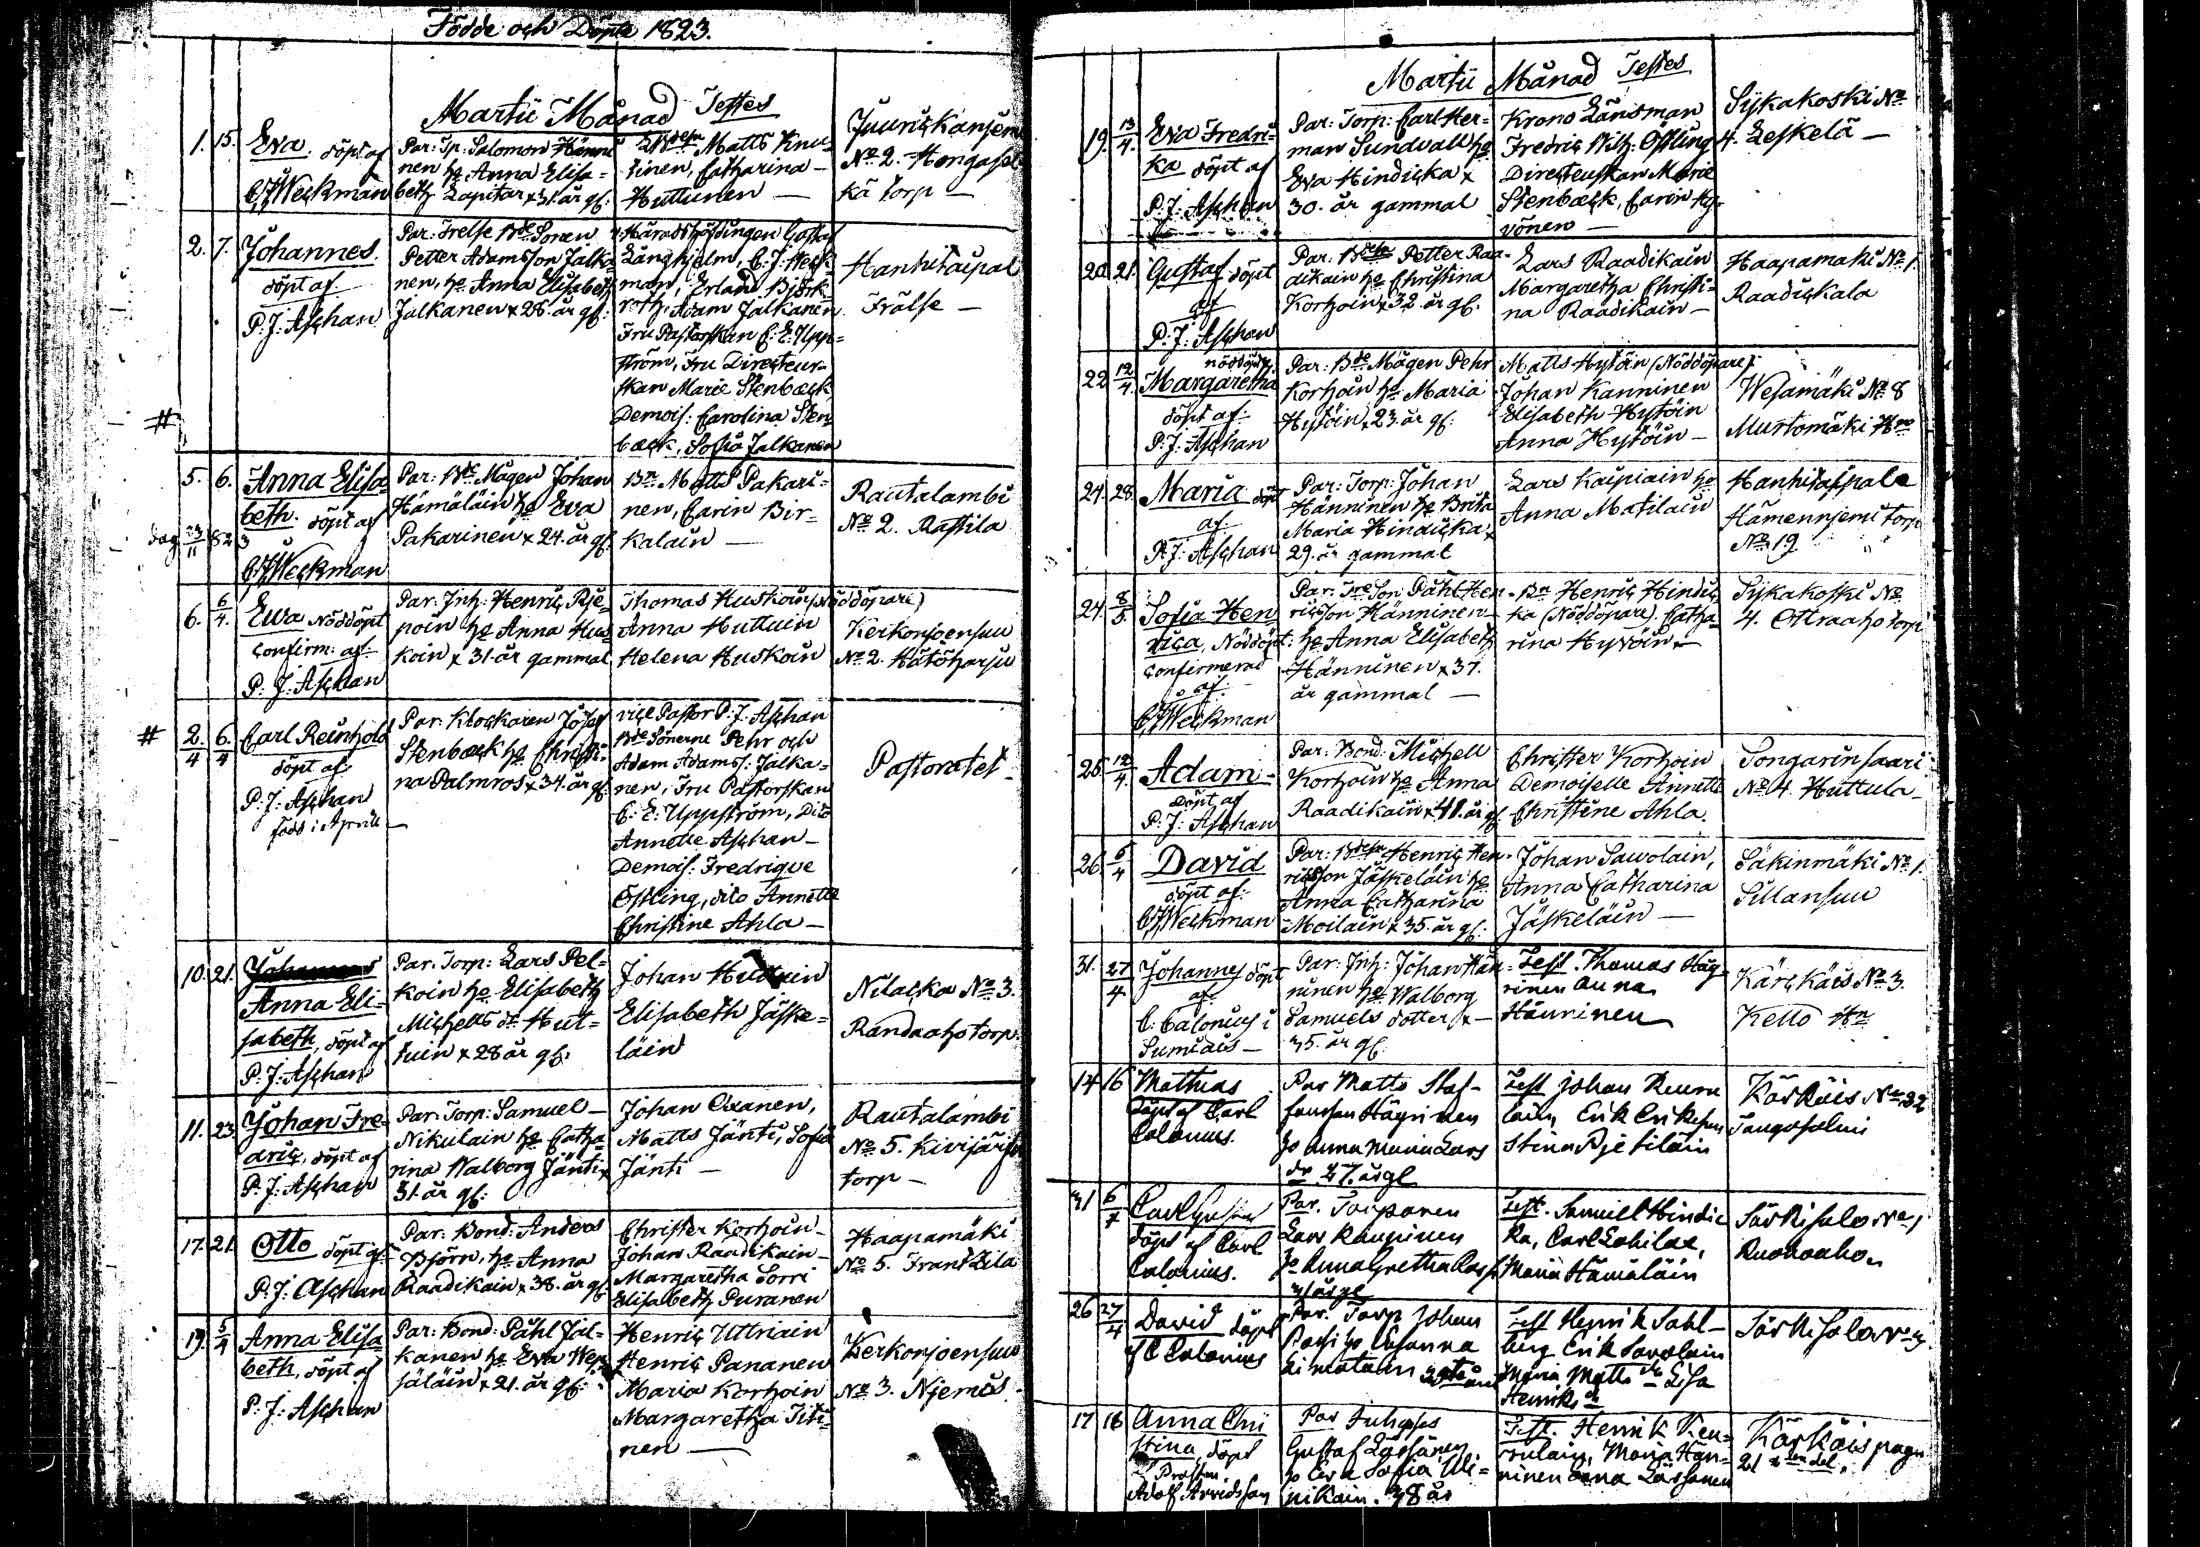 Födde och Döpte 1823.
Martii Månad Testes
1. 15. Eva döpt af
C: J: Weckman
Par: Tp: Salomon Hänni
nen h: Anna Elisa=
beth Lapitar x 31. år gl:
Matts Knu=
tinen, Catharina
Huttunen —
No 2. Hongasel
kä torp —
2. 7. Johannes.
döpt af
P: J: Aschan
Par: Frelse Bde Sonen
Petter Adamsson Jalka=
nen, h: Anna Elisabeth
Jalkanen x 28. år gl:
Häradshöfdingen Gustaf
Långhjelm, C: J: Weck=
man, Erland Björk
roth, Adam Jalkanen
Fru Pastorskan C: E: Upp=
ström, Fru Directeur=
skan Marie Stenbæck
Demois: Carolina Sten
bæck, Sofia Jalkanen
Hankitaipal
Frälse —
#
5. 6. Anna Elisa=
beth. döpt af
C: J: Weckman
Par: Bde Mågen Johan
Hämäläin h: Eva
Pakarinen x 24. år gl:
Bn Matts Pakari=
nen, Carin Bir=
kalain —
Rautalambi
No 2. Rastila
dag 23/11 823
6. 6/4. Ewa Nöddöpt
confirm: af
P: J: Aschan
Par: Inh: Henric Rje=
poin h: Anna Hus=
koin x 31. år gammal
Thomas Huskoin (Nöddöpare)
Anna Huttuin
Helena Huskoin
Kerkonjoensuu
No 2. Hätöharju
# 2/4 6/4 Carl Reinhold
döpt af
P: J: Aschan
född i Aprill —
Par: Klockaren Josef
Stenbæck h: Christi=
na Palmros x 34. år gl:
vice Pastor P: J: Aschan
Bde Sönerne Pehr och
Adam Adamss: Jalka=
nen, Fru Pastorskan
C: E: Uppström, Dito
Annette Aschan —
Demois: Fredrique
Östling, dito Annette
Christine Ahla —
Pastoratet —
10. 21. Johannes
Anna Eli=
sabeth, döpt af
P: J: Aschan
Par: Torp: Lars Pel=
koin h: Elisabeth
Michels dr Hut=
tuin x 28 år gl:
Johan Huttuin
Elisabeth Jäske=
läin
Nilacka No 3.
Randaaho torp.
11. 23. Johan Fre=
dric, döpt af
P: J: Aschan
Par: Torp: Samuel —
Nikulain h: Catha
rina Walborg Jänti x
31. år gl:
Johan Oxanen,
Matts Jänti, Sofia
Jänti —
Rautalambi
No 5. Kivijärfvi
torp —
17. 21. Otto döpt af
P: J: Aschan
Par: Bond: Anders
Björn, h: Anna
Raadikain x 38. år gl:
Christer Korhoin —
Johan Raadikain —
Margaretha Sorri
Elisabeth Puranen
Haapamäki
No 5. Frantzila
19. 5/4 Anna Elisa
beth, döpt af
P: J: Aschan
Par: Bond: Påhl Jal=
kanen h: Eva Wep=
säläin x 21. år gl:
Henric Uttriain
Henric Pananen
Maria Korhoin
Margaretha Titi=
nen —
Kerkonjoensuu
No 3. Njemäs
Martii Månad Testes
19. 13/4. Eva Fredri=
ka döpt af
P: J: Aschan
Par: Torp: Carl Her=
man Sundvall h:
Eva Hindicka x
30. år gammal
Krono Länsman
Fredric Wilh: Östling
Directeuskan Marie
Stenbæck, Carin Hy=
vönen —
Sykakoski No
4. Leskelä —
20. 21. Gustaf döpt
af
P: J: Aschan
Par: Petter Raa=
dikain h: Christina
Korhoin x 32. år gl:
Lars Raadikain
Margaretha Christi=
na Raadikain —
Haapamäki No 1.
Raadickala
22. 12/4. nöddöpt
Margaretha
döpt af
P: J: Aschan
Par: Bde Mågen Pehr
Korhoin h: Maria
Hytöin x 23. år gl:
Matts Hytöin (Nöddöpare)
Johan Kanninen
Elisabeth Hytöin
Anna Hytöin —
Wesamäki No 8
Mustomäki Hn
24. 28. Maria döpt
af
P: J: Aschan
Par: Torp: Johan
Hänninen h: Brita
Maria Hindicka x
29. år gammal
Lars Kaipiain h:
Anna Matilain
Hankitaipale
Hämennjemi torp
No 19
24. 8/5. Sofia Hen
rica, Nöddöpt:
confirmerad
af
C: J: Weckman
Par: Påhl Hen=
ricsson Hänninen
h: Anna Elisabeth
Hänninen x 37.
år gammal —
Bn Henric Hindic
ka (Nöddöpare). Catha=
rina Hyvöin —
Sykakoski No
4. Ollraaho torp
25. 12/4. Adam —
döpt af
P: J: Aschan
Par: Bond: Michell
Korhoin h: Anna
Raadikain x 41. år gl:
Christer Korhoin
Demoiselle Annette
Christine Ahla.
Songarinsaari
No 4. Huttula —
26. 6/4 David
döpt af
C: J: Weckman
Par: Henric Hen=
ricsson Jäskeläin h:
Anna Catharina
Moilain x 35. år gl:
Johan Sawolain,
Anna Catharina
Jäskeläin —
Säkinmäki No 1.
Sillansuu
31. 27/4 Johannes döpt
af
C: Calonius i
Sumiais —
Par: Inh: Johan Hän=
ninen h: Walborg
Samuels dotter x —
35. år gl:
Test. Thomas Häg
rinen Anna
Hänninen
Kärckäis No 3.
Kello Hn
14 16 Mathias
döpt af Carl
Calonius.
Par Matts Staf=
fansson Hägrinen
ho Anna Maria Lars
dr 27. år gl
Test Johan
Erik Eriksson
Stina Rjetiläin
Kärkäis No 32
Tangosalmi
31 6/7
döpt af Carl
Calonius.
Par. Torparen
Lars Kaupinen
ho Anna Gretha
Test. Samuel Hindic
ka, Carl Lohilax,
Maria Hämäläin
Särkisalo No 1
Ruokoaho
26 27/4 David döpt
af C Calonius
Par. Torp Johan
Rossi ho Susanna
Test Henrik Sahl=
berg Erik Savolain
Maria Matts dr Lisa
Henriks dr
Särkisalo No 3
17 16 Anna Chri
stina, döpt
Prosten
Adolf Arvidsson
Par
Gustaf Lässänen
ho Sofia
nikain. 38 år
Test. Henrik Keu=
rulain, Maria Hän=
ninen Anna Lässänen
Kärkäis
21